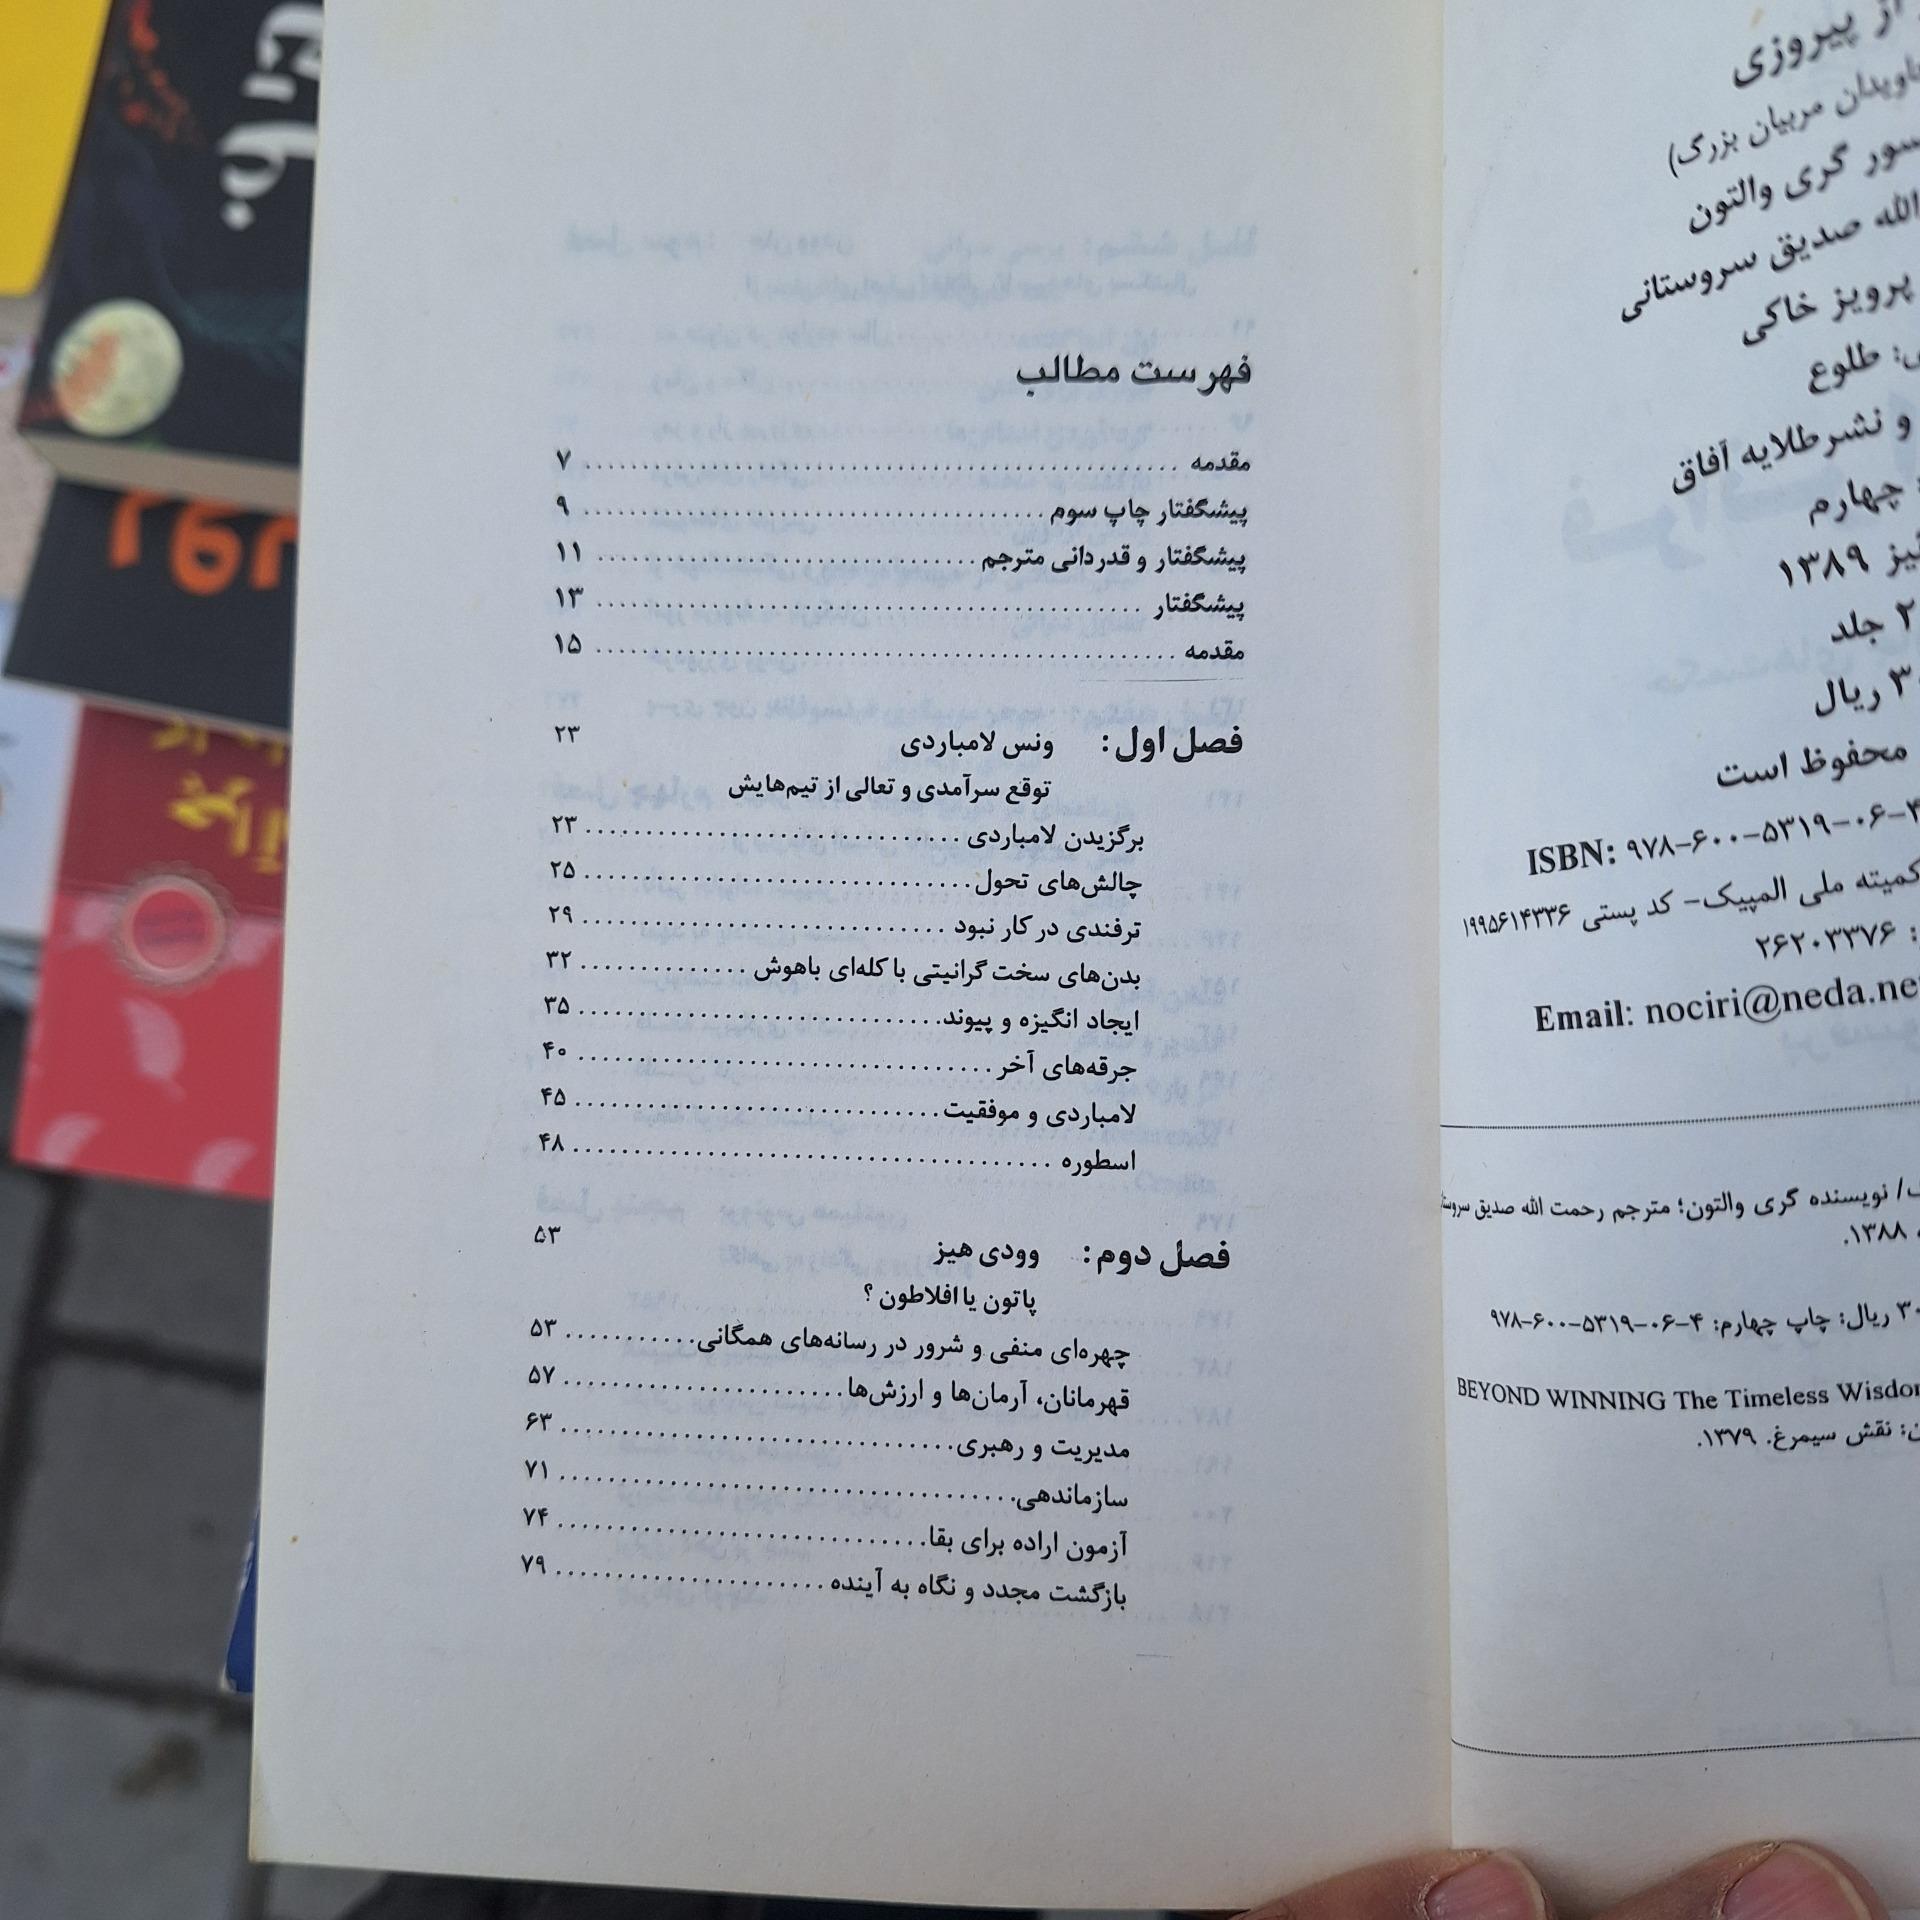 فهرست مطالب
مقدمه ........ ۷
پیشگفتار چاپ سوم ........ ۹
پیشگفتار و قدردانی مترجم ........ ۱۱
پیشگفتار ........ ۱۳
مقدمه ........ ۱۵
فصل اول: ونس لامباردی ۲۳
توقع سرآمدی و تعالی از تیم‌هایش
برگزیدن لامباردی ........ ۲۳
چالش‌های تحول ........ ۲۵
ترفندی در کار نبود ........ ۲۹
بدن‌های سخت گرانیتی با کله‌ای باهوش ........ ۳۲
ایجاد انگیزه و پیوند ........ ۳۵
جرقه‌های آخر ........ ۴۰
لامباردی و موفقیت ........ ۴۵
اسطوره ........ ۴۸
فصل دوم: وودی هیز ۵۳
پاتون یا افلاطون؟
چهره‌ای منفی و شرور در رسانه‌های همگانی ........ ۵۳
قهرمانان، آرمان‌ها و ارزش‌ها ........ ۵۷
مدیریت و رهبری ........ ۶۳
سازماندهی ........ ۷۱
آزمون اراده برای بقا ........ ۷۴
بازگشت مجدد و نگاه به آینده ........ ۷۹
از پیروزی
مربیان بزرگ)
گری والتون
الله صدیق سروستانی
پرویز خاکی
طلوع
و نشر طلایه آفاق
چهارم
۱۳۸۹
جلد
ریال
محفوظ است
ISBN: ۹۷۸-۶۰۰-۵۳۱۹-۰۶-۴
کمیته ملی المپیک- کد پستی ۱۹۹۵۶۱۴۳۳۶
: ۲۶۲۰۳۳۷۶
Email: nociri@neda.net
/ نویسنده گری والتون؛ مترجم رحمت الله صدیق
۱۳۸۸.
ریال: چاپ چهارم: ۹۷۸-۶۰۰-۵۳۱۹-۰۶-۴
BEYOND WINNING The Timeless
نقش سیمرغ. ۱۳۷۹.